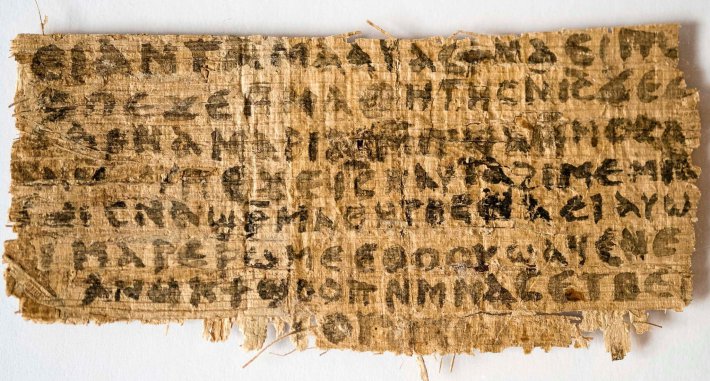 ⲁⲉⲓ ⲁⲛ ⲧⲁⲙⲁⲁⲩ ⲁⲥϯ ⲛⲁⲉⲓ ⲡⲱ
ⲡⲉϫⲉ ⲙⲙⲁⲑⲏⲧⲏⲥ ⲛⲓ̅ⲥ̅ ϫⲉ ⲥ
ⲁⲣⲛⲁ ⲙⲁⲣⲓⲁⲙ ⲙⲡϣⲁ ⲙⲙⲟⲥ ⲁ
ⲡⲉϫⲉ ⲓ̅ⲥ̅ ⲛⲁⲩ ⲧⲁϩⲓⲙⲉ ⲙⲛ
ⲥⲛⲁϣⲣⲙⲁⲑⲏⲧⲏⲥ ⲛⲁⲉⲓ ⲁⲩⲱ
ⲓ ⲙⲁⲣⲉⲣⲱⲙⲉ ⲉⲑⲟⲟⲩ ϣⲁϥⲉ ⲛⲉ
ⲁⲛⲟⲕ ϯϣⲟⲟⲡ ⲛⲙⲙⲁⲥ ⲉⲧⲃⲉ ⲡ